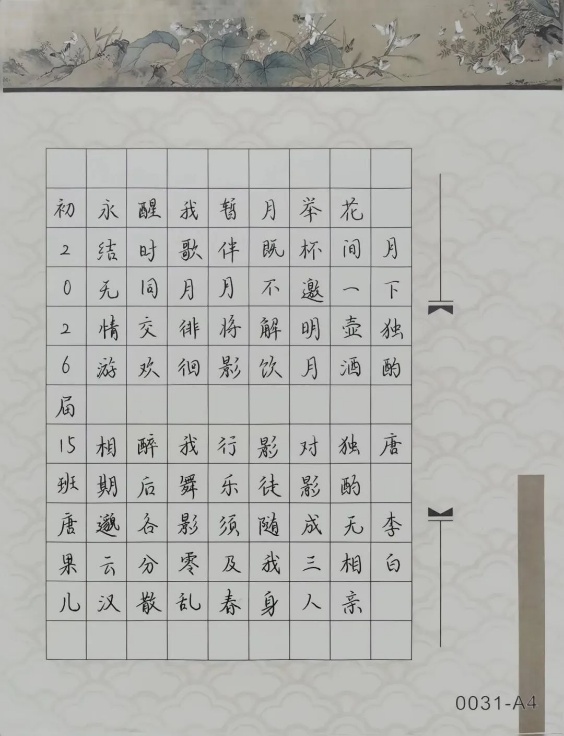 月下独酌 唐 李白
花间一壶酒 独酌无相亲
举杯邀明月 对影成三人
月既不解饮 影徒随我身
暂伴月将影 行乐须及春
我歌月徘徊 我舞影零乱
醒时同交欢 醉后各分散
永结无情游 相期邈云汉
初2026届 15班唐果儿
0031-A4